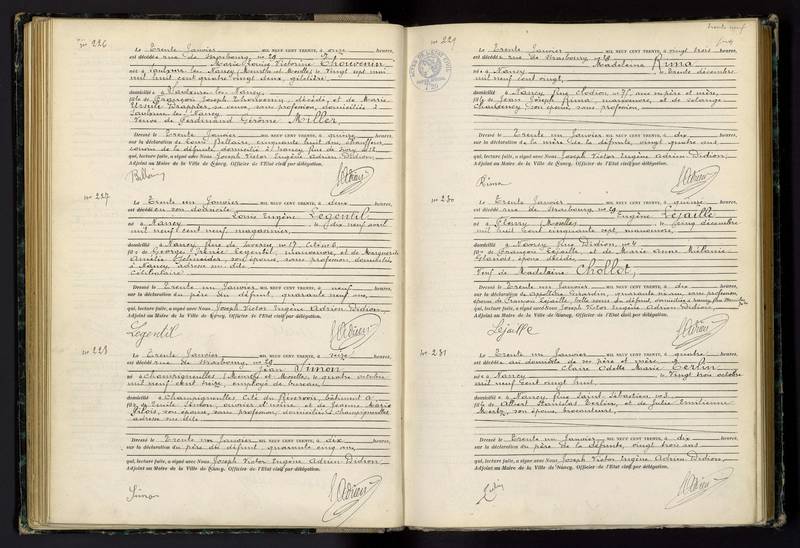 no 226
Le Trente Janvier MIL NEUF CENT TRENTE, à onze heures,
est décédée rue de Strasbourg no 29
Marie Louise Victorine Thouvenin
née à Vaudémont Nancy, Meurthe et Moselle, le Vingt sept mai
mil huit cent quatre vingt deux, giletière
domiciliée à Nancy
fille de François Joseph Thouvenin, décédé, et de Marie
Ursule sa veuve, sans profession, domiciliée à
Nancy
Veuve de Ferdinand Gérôme Miller
Dressé le Trente Janvier MIL NEUF CENT TRENTE, à quinze heures,
sur la déclaration de Louis Bellaire, cinquante huit ans, chauffeur,
de la défunte, domicilié à Nancy rue de
qui, lecture faite, a signé avec Nous Joseph Victor Eugène Adrien Didion
Adjoint au Maire de la Ville de Nancy, Officier de l'Etat civil par délégation.
no 227
Le Trente un Janvier MIL NEUF CENT TRENTE, à deux heures,
est décédé en son domicile
Louis Eugène Legentil
né à Nancy le dix neuf avril
mil neuf cent neuf, magasinier
domicilié à Nancy, rue de Saverne no 17
fils de Georges Legentil, manoeuvre, et de Marguerite
Amélie Schneider, son épouse, sans profession, domiciliés
à Nancy adresse sus dite
Célibataire
Dressé le Trente un Janvier MIL NEUF CENT TRENTE, à neuf heures,
sur la déclaration du père du défunt, quarante neuf ans,
qui, lecture faite, a signé avec Nous Joseph Victor Eugène Adrien Didion
Adjoint au Maire de la Ville de Nancy, Officier de l'Etat civil par délégation.
Legentil
no 228
Le Trente Janvier MIL NEUF CENT TRENTE, à seize heures,
est décédé rue de Strasbourg no 29
Jean Simon
né à Champigneulles (Meurthe et Moselle, le quatre octobre
mil neuf cent treize, employé de bureau
domicilié à Champigneulles Cité du Réservoir, bâtiment A
fils de Emile Simon, ouvrier d'usine et de Jeanne Marie
son épouse, sans profession, domiciliés à Champigneulles
adresse sus dite
Dressé le Trente un Janvier MIL NEUF CENT TRENTE, à dix heures,
sur la déclaration du père du défunt, quarante cinq ans,
qui, lecture faite, a signé avec Nous Joseph Victor Eugène Adrien Didion
Adjoint au Maire de la Ville de Nancy, Officier de l'Etat civil par délégation.
Simon
Trente neuf
no 229
Le Trente Janvier MIL NEUF CENT TRENTE, à vingt trois heures,
est décédée rue de Strasbourg no 29
Madeleine Rima
née à Nancy le trente décembre
mil neuf cent vingt,
domiciliée à Nancy rue Clodion no 31, avec ses père et mère,
fille de Jean Joseph Rima, manoeuvre, et de Solange
son épouse, sans profession
Dressé le Trente un Janvier MIL NEUF CENT TRENTE, à dix heures,
sur la déclaration de la mère de la défunte, vingt quatre ans
qui, lecture faite, a signé avec Nous Joseph Victor Eugène Adrien Didion
Adjoint au Maire de la Ville de Nancy, Officier de l'Etat civil par délégation.
Rima
no 230
Le Trente Janvier MIL NEUF CENT TRENTE, à quinze heures,
est décédé rue de Strasbourg no 29
Eugène Lejaille
né à Fleury (Moselle) le cinq décembre
mil huit cent cinquante sept, manoeuvre,
domicilié à Nancy rue Didion no 4
fils de François Lejaille, et de Marie Anne Mélanie
son épouse décédés
Veuf de Madeleine Chollot,
Dressé le Trente un Janvier MIL NEUF CENT TRENTE, à dix heures,
sur la déclaration de Girardin, quarante ans, sans profession
épouse de François Lejaille, belle soeur du défunt, domiciliée à Nancy
qui, lecture faite, a signé avec Nous Joseph Victor Eugène Adrien Didion
Adjoint au Maire de la Ville de Nancy, Officier de l'Etat civil par délégation.
Lejaille
no 231
Le Trente un Janvier MIL NEUF CENT TRENTE, à quatre heures,
est décédée au domicile de ses père et mère
Claire Odette Marie Terlin
née à Nancy le Vingt trois octobre
mil neuf cent vingt huit,
domiciliée à Nancy, rue Saint Sébastien no 3
fille de Albert Stanislas Terlin, et de Julie Emilienne
son épouse, brocanteurs,
Dressé le Trente un Janvier MIL NEUF CENT TRENTE, à dix heures,
sur la déclaration du père de la défunte, vingt trois ans
qui, lecture faite, a signé avec Nous Joseph Victor Eugène Adrien Didion
Adjoint au Maire de la Ville de Nancy, Officier de l'Etat civil par délégation.